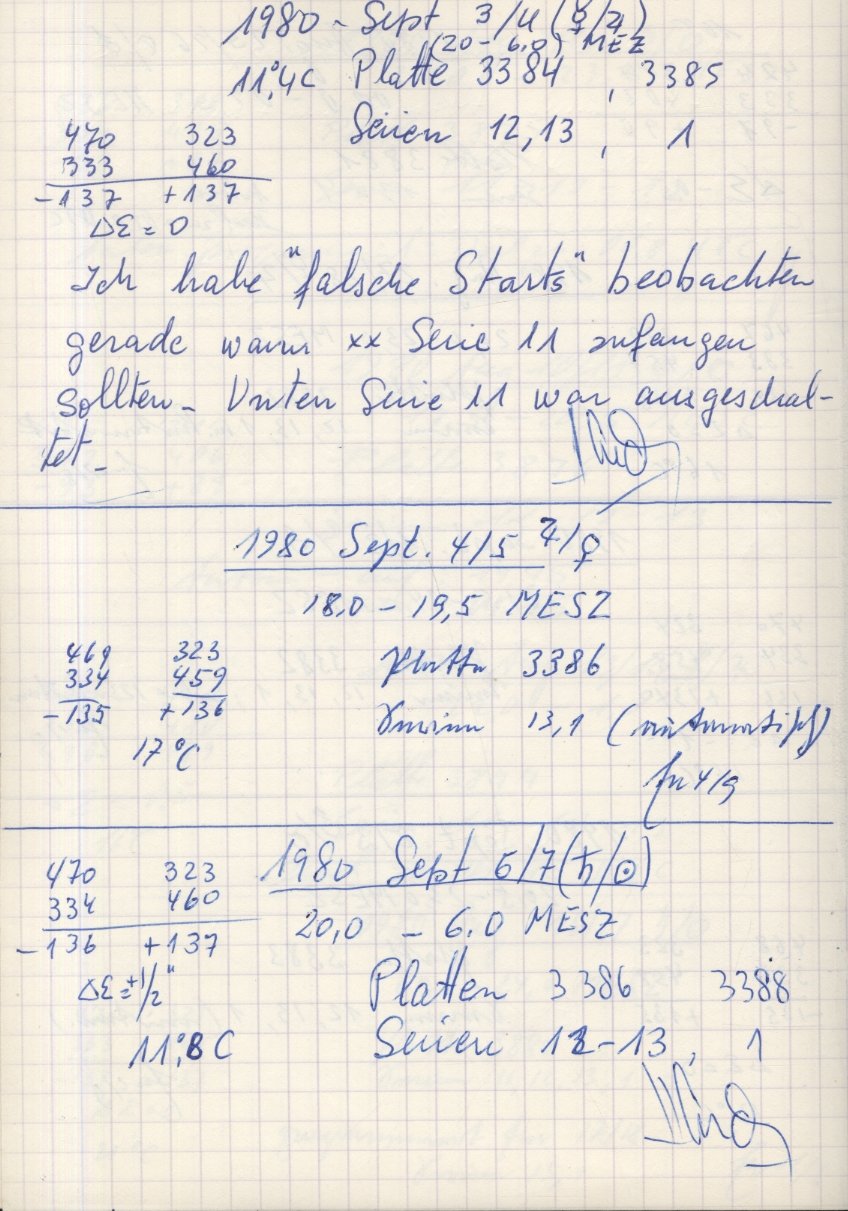 1980 - Sept 3/4 (☿/♃)
(20 - 6.0) MEZ
11°,4C Platte 3384 , 3385
Serien 12,13 , 1
470 323
333 460
-137 +137
ΔƐ = 0
Ich habe "falsche Starts" beobachten
gerade wann xx Serie 11 anfangen
sollten - Unten Serie 11 war ausgeschal-
tet -
1980 Sept. 4/5 ♃/♀
18.0 - 19,5 MESZ
469 323
334 459
-135 +136
17 °C
Platten 3386
Serien 13,1 (automatisch)
470 323
334 460
-136 +137
ΔƐ = +1/2"
11°,8 C
1980 Sept 6/7 (♄/☉)
20,0 - 6.0 MESZ
Platten 3386 3388
Serien 12-13 , 1